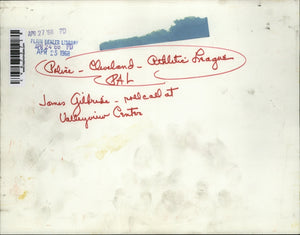 APR 27 '68 PD
PLAIN DEALER LIBRARY
APR 24 68 PD
APR 23 1968
Police - Cleveland - Athletic League
PAL
James Gilbride - at
Valleyview Center